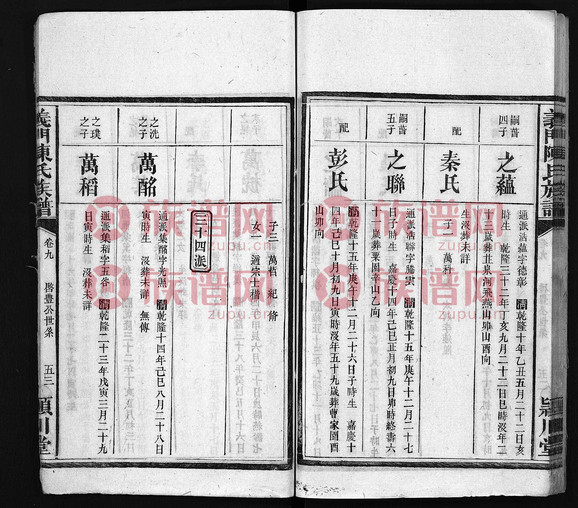 義門陳氏族譜
嗣瑃四子
之蘊
通派活蘊字德彰
乾隆三十年乙丑五月二十二日寅
時生
乾隆三十二年丁亥九月二十二日巳時
十三歲葬北泉河飛燕山卯山酉向
配
秦氏
生沒葬未詳
子一
萬科
嗣瑃五子
之聯
通派活聯字勝雲
乾隆十五年庚午十二月二十七
日子時生
嘉慶十四年己巳正月初九日卯時終壽六
十一歲葬粟園辛山乙向
配
彭氏
乾隆十五年庚午十二月二十六日子時生
嘉慶十
四年己巳十月初九日寅時沒年五十九歲葬曹家園酉
山卯向
子三
萬
紀
女一
適宗士
三十四派
之洗之子
萬酩
通派集酩字光照
乾隆十四年己巳八月二十八日
寅時生
沒葬未詳
無傳
之璞之子
萬稻
通派集稻字五谷
乾隆二十三年戊寅三月二十九
日寅時生
沒葬未詳
義門陳氏族譜
卷九
公世系
五三
潁川堂
潁川堂
族谱网